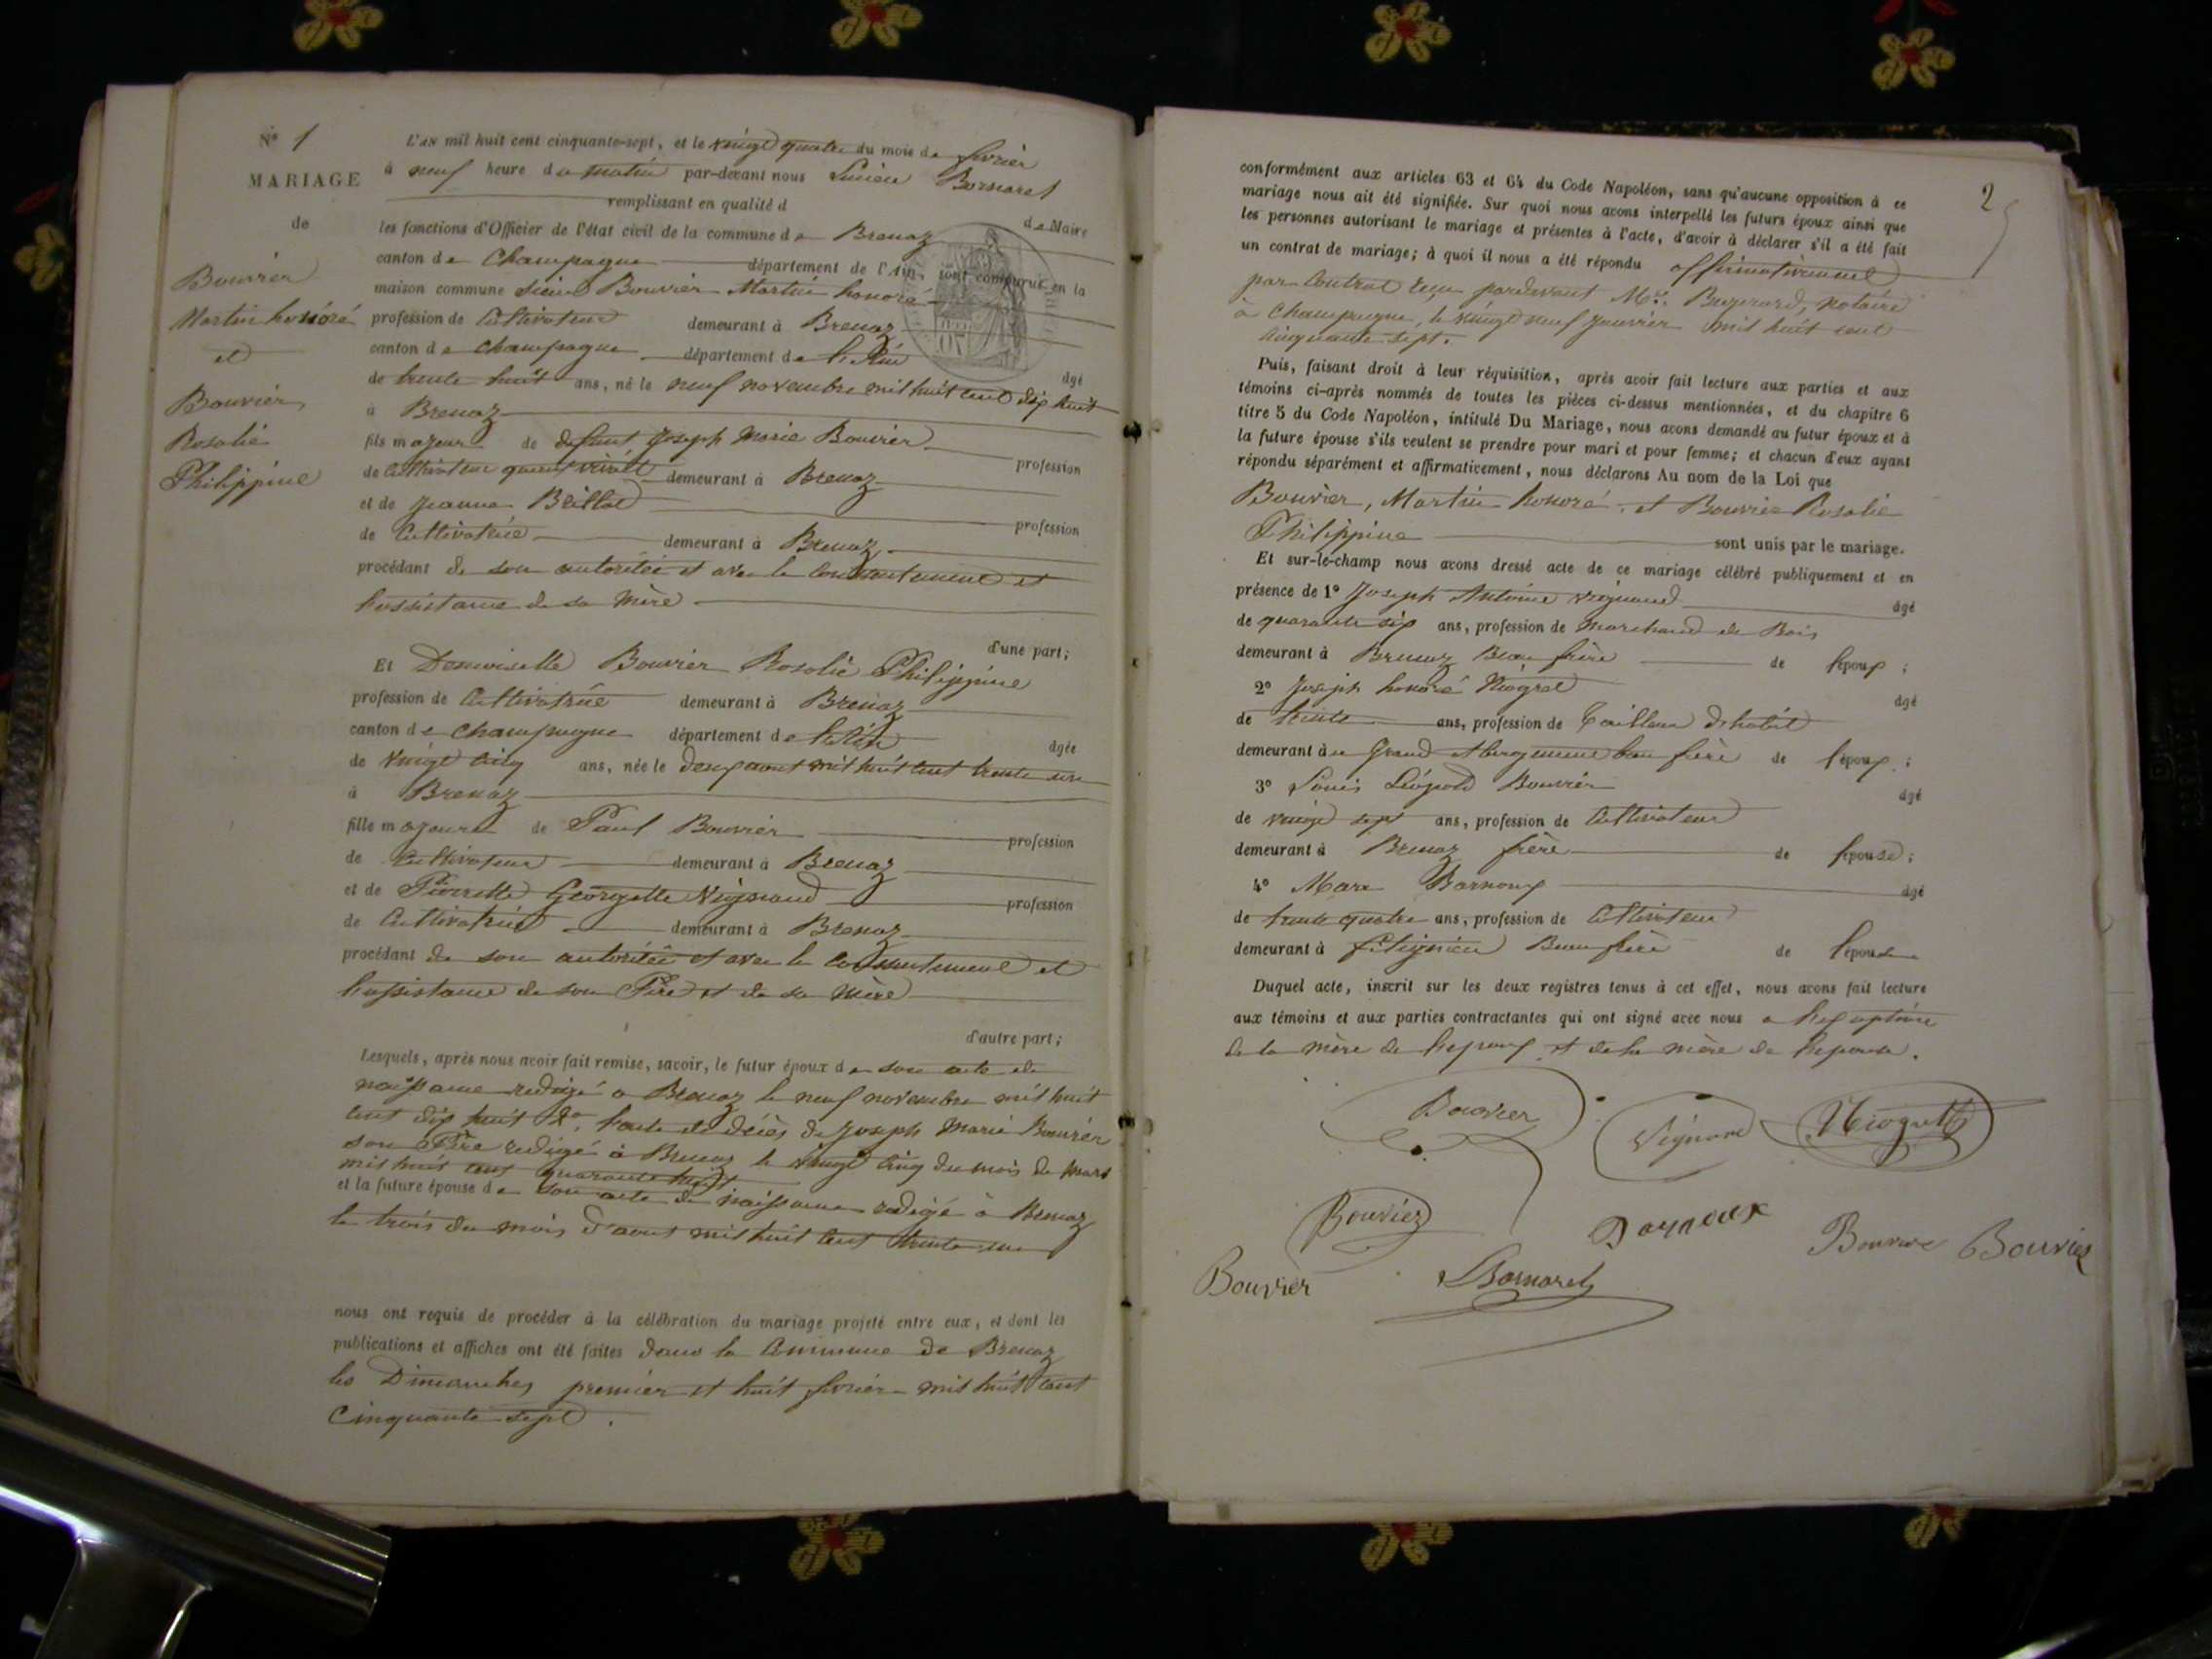 N° 1
MARIAGE
de
Bouvier
Martin honoré
et
Bouvier
Rosalie
Philippine
L'AN mil huit cent cinquante-sept, et le vingt quatre du mois de fevrier
à neuf heure du matin par-devant nous Lucien Bornarel
remplissant en qualité d
de Maire
les fonctions d'Officier de l'état civil de la commune de Brenaz
canton de Champagne département de l'Ain, sont comparus en la
maison commune sieur Bouvier Martin honoré
profession de Cultivateur demeurant à Brenaz
canton de champagne département de l'Ain
âgé
de trente huit ans, né le neuf novembre mil huit cent dix huit
à Brenaz
fils majeur de defunt Joseph Marie Bouvier
profession
de Cultivateur quand vivait demeurant à Brenaz
et de Jeanne Brillat
profession
de Cultivatrice demeurant à Brenaz
procédant de son autoritée et avec le consentement et
l'assistance de sa Mère
d'une part;
Et Demoiselle Bouvier Rosalie Philippine
profession de Cultivatrice demeurant à Brenaz
canton de Champagne département de l'Ain
âgée
de vingt cinq ans, née le deux aout mil huit cent trente un
à Brenaz
fille majeure de Paul Bouvier
profession
de Cultivateur demeurant à Brenaz
et de Pierrette Georgette Vignand
profession
de Cultivatrice demeurant à Brenaz
procédant de son autoritée et avec le consentement et
l'assistance de son Père et de sa Mère
d'autre part;
Lesquels, après nous avoir fait remise, savoir, le futur époux de son acte de
naissance redigé a Brenaz le neuf novembre mil huit
cent dix huit 2°. l'acte de décès de Joseph Marie Bouvier
son Père redigé à Brenaz le vingt cinq du mois de mars
mil huit cent quarante huit
et la future épouse de son acte de naissance redigé à Brenaz
le trois du mois d'aout mil huit cent trente un
nous ont requis de procéder à la célébration du mariage projeté entre eux, et dont les
publications et affiches ont été faites dans la Commune de Brenaz
les Dimanches premier et huit fevrier mil huit cent
Cinquante sept.
2
conformément aux articles 63 et 64 du Code Napoléon, sans qu'aucune opposition à ce
mariage nous ait été signifiée. Sur quoi nous avons interpellé les futurs époux ainsi que
les personnes autorisant le mariage et présentes à l'acte, d'avoir à déclarer s'il a été fait
un contrat de mariage; à quoi il nous a été répondu affirmativement
par Contrat reçu pardevant notaire
à Champagne, le vingt neuf janvier mil huit cent
cinquante sept.
Puis, faisant droit à leur réquisition, après avoir fait lecture aux parties et aux
témoins ci-après nommés de toutes les pièces ci-dessus mentionnées, et du chapitre 6
titre 5 du Code Napoléon, intitulé Du Mariage, nous avons demandé au futur époux et à
la future épouse s'ils veulent se prendre pour mari et pour femme; et chacun d'eux ayant
répondu séparément et affirmativement, nous déclarons Au nom de la Loi que
Bouvier, Martin honoré, et Bouvier Rosalie
Philippine sont unis par le mariage.
Et sur-le-champ nous avons dressé acte de ce mariage célébré publiquement et en
présence de 1° Joseph Antoine Vignand
âgé
de quarante six ans, profession de Marchand de Bois
demeurant à Brenaz Beau frère de l'époux;
2° Joseph honoré
âgé
de trente ans, profession de tailleur d'habit
demeurant à Grand abergement beau frère de l'époux;
3° Louis Léopold Bouvier
âgé
de vingt sept ans, profession de Cultivateur
demeurant à Brenaz frère de l'épouse;
4° Marc Barnoux
âgé
de trente quatre ans, profession de Cultivateur
demeurant à fitignieu Beau frère de l'épouse
Duquel acte, inscrit sur les deux registres tenus à cet effet, nous avons fait lecture
aux témoins et aux parties contractantes qui ont signé avec nous a l'exception
de la mère de l'epoux et de la mère de l'epouse.
Bouvier Vignand
Bouvier
Bouvier
Bouvier Bornarel